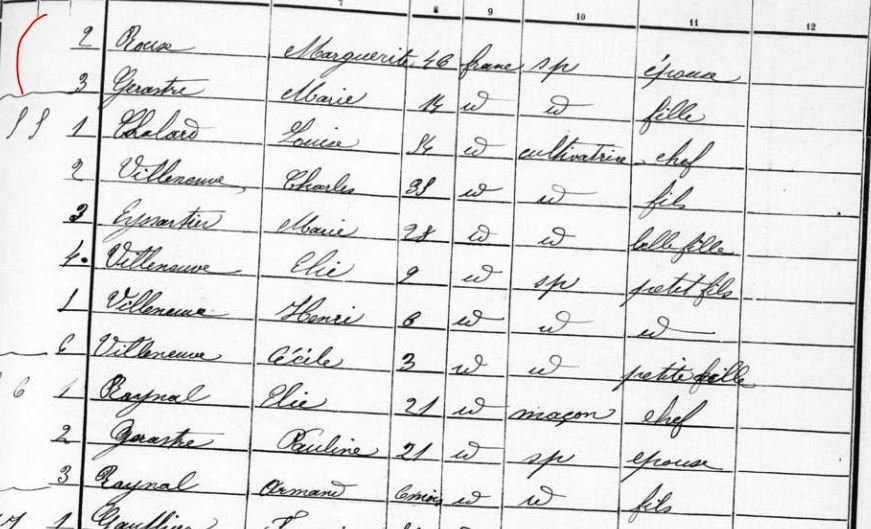 7 8 9 10 11 12
2 Roux Marguerite 46 franc sp épouse
3 Gerastre Marie 14 id id fille
55 1 Chalard Louise 54 id cultivatrice chef
2 Villeneuve Charles 38 id id fils
3 Eyssartier Marie 28 id id belle fille
4 Villeneuve Elie 9 id sp petit fils
1 Villeneuve Henri 6 id id id
6 Villeneuve Cécile 3 id id petite fille
6 1 Raynal Elie 21 id maçon chef
2 Gerastre Pauline 21 id sp epouse
3 Raynal Armand 6 mois id id fils
1 Gauthier